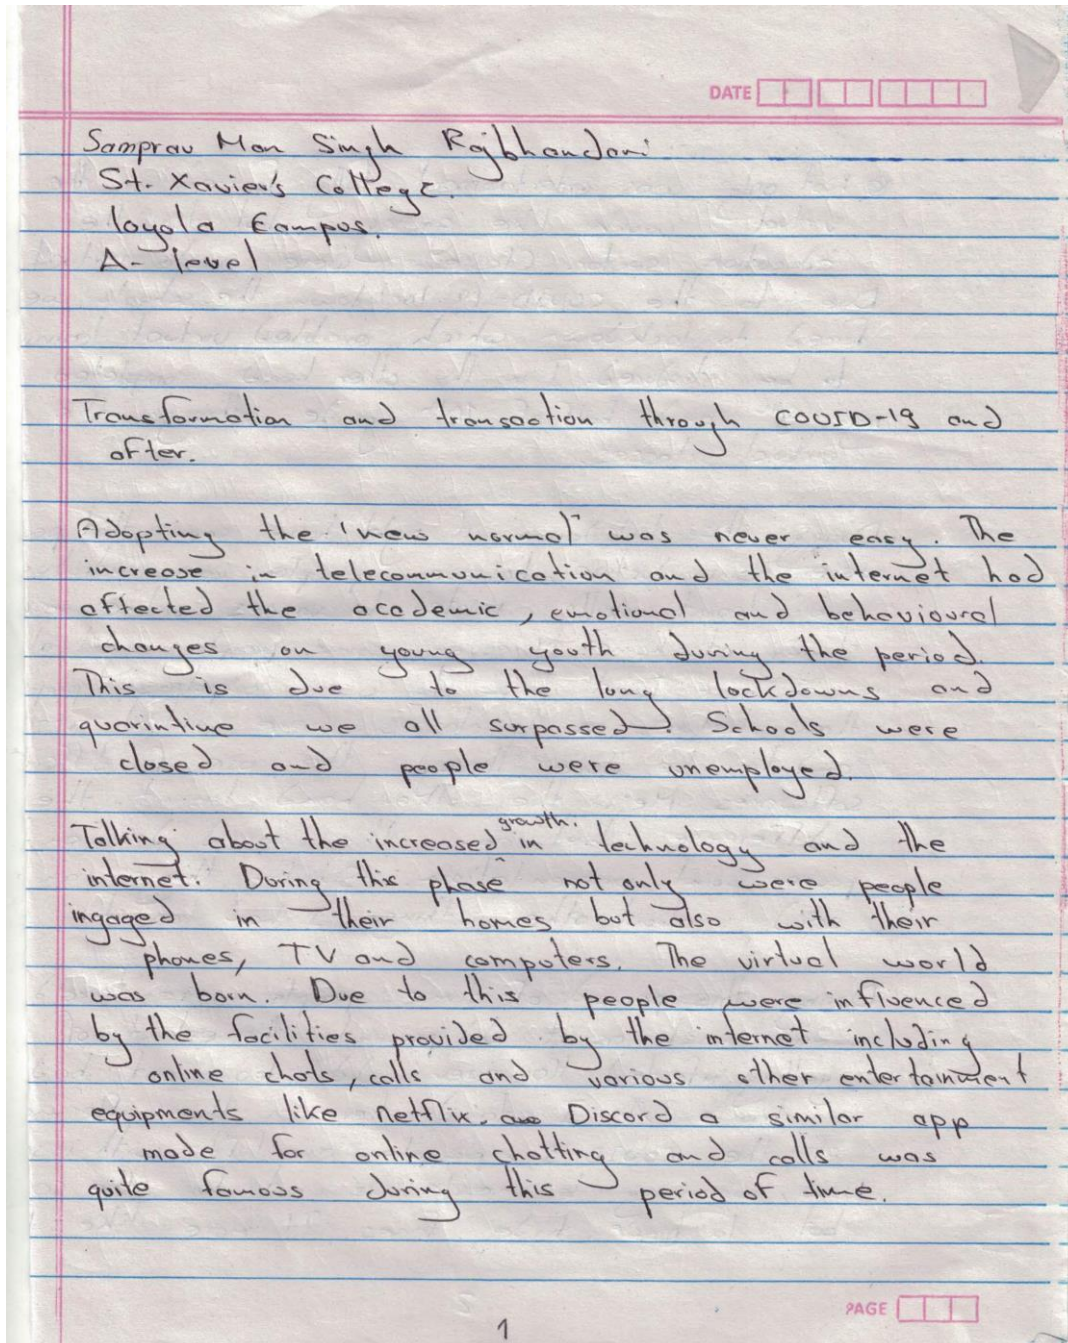 DATE
Samprav Man Singh Rajbhandari
St. Xavier's College.
loyola Campus.
A- level
Transformation and transaction through COVID-19 and
after.
Adopting the 'new normal' was never easy. The
increase in telecommunication and the internet had
affected the academic, emotional and behavioural
changes on young youth during the period.
This is due to the long lockdowns and
quarintine we all surpassed. Schools were
closed and people were unemployed.
growth.
Talking about the increased in technology and the
internet. During this phase not only were people
ingaged in their homes but also with their
phones, TV and computers. The virtual world
was born. Due to this people were influenced
by the facilities provided by the internet including
online chats, calls and various other entertainment
equipments like netflix. Discord a similar app
made for online chatting and calls was
quite famous during this period of time.
PAGE
1